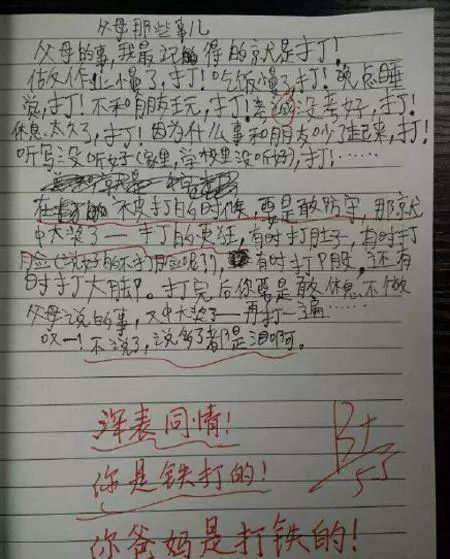 父母那些事儿
父母的事,我最记的得的就是打!
做作业慢了,打!吃饭慢了,打!晚点睡
觉,打!不和朋友玩,打!考试没考好,打!
休息太久了,打!因为什么事和朋友吵了起来,打!
听写没听好(家里,学校里没听好),打!……
在 不皮打的时候,要是敢防守,那就
中大奖了——打的更狂,有时打肚子,有时打
脸(说好的不打脸呢?!), 有时打P股,还有
时打大腿。打完后你要是敢休息不做
父母说的事,又中大奖了——再打一遍……
哎一!不说了,说多了都是泪啊。
深表同情!
你是铁打的!
B+
5.3
你爸妈是打铁的!